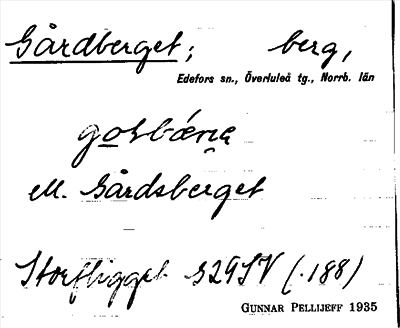 Gårdberget; berg,
Edefors sn., Överluleå tg., Norrb. län
el. Gårdsberget
Storfligget S29SV (.188)
GUNNAR PELLIJEFF 1935